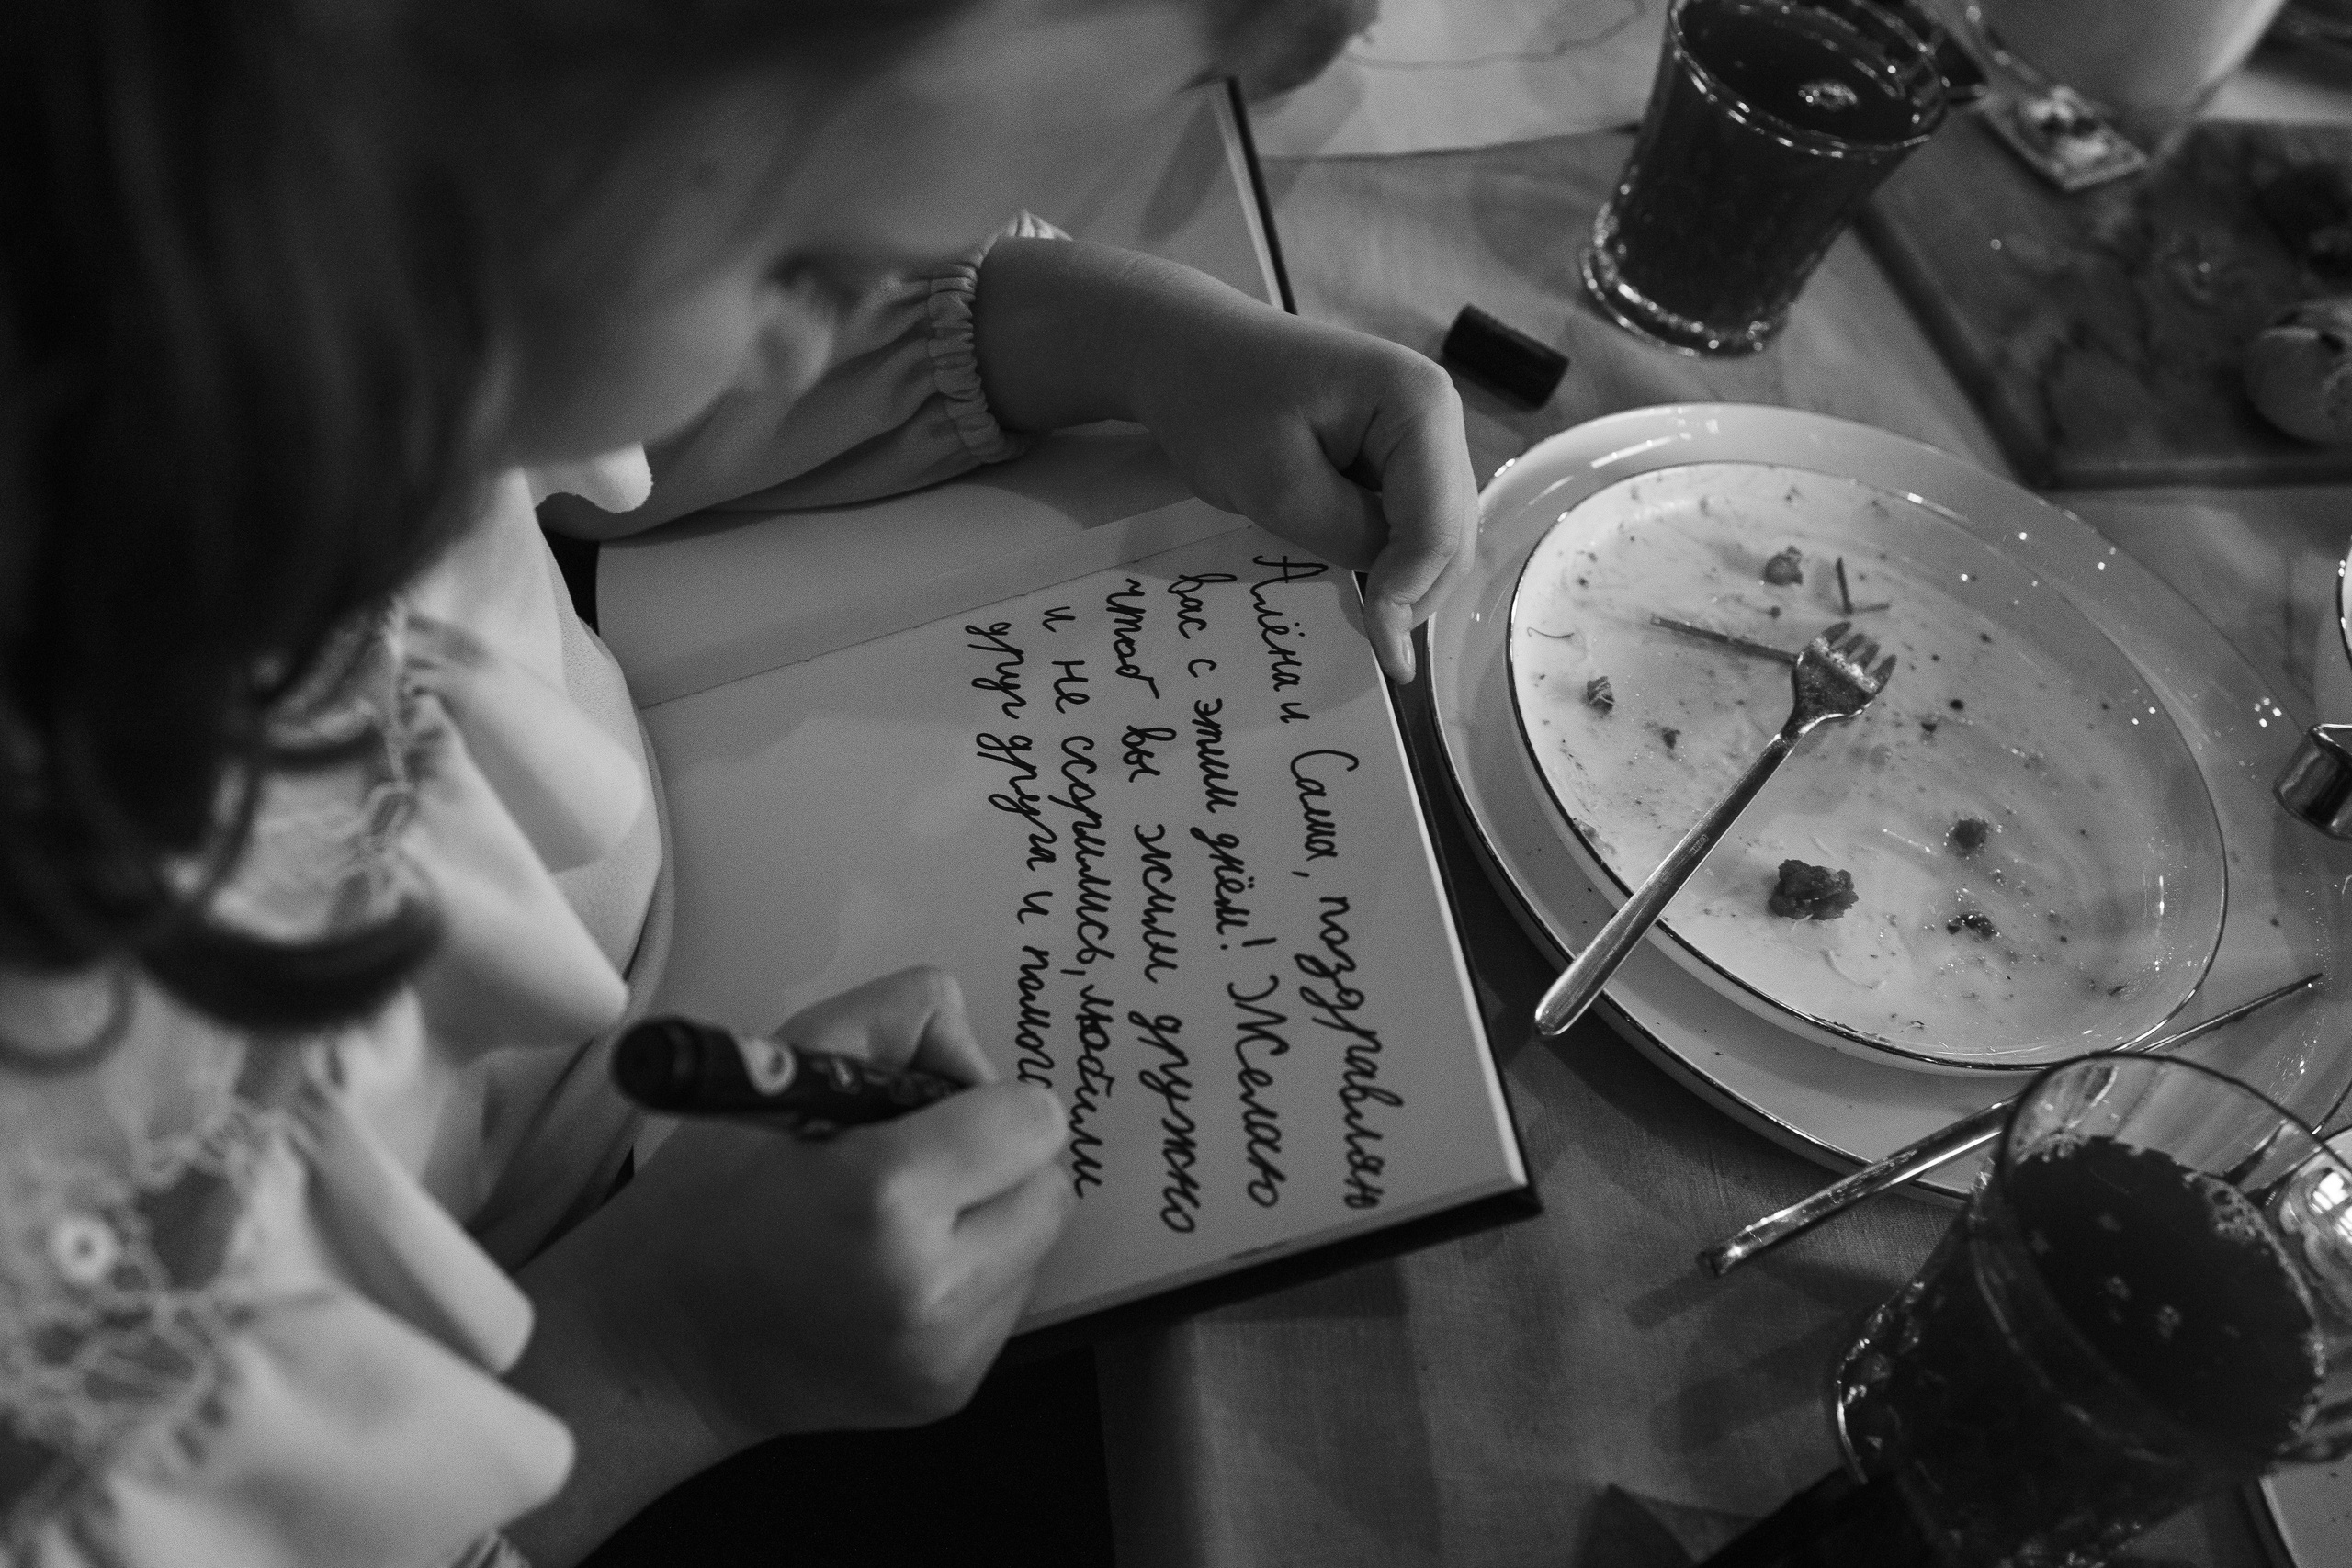 Алёна и Саша, поздравляю
вас с этим днём! Желаю
чтоб вы жили дружно
и не ссорились, любили
друг друга и помог